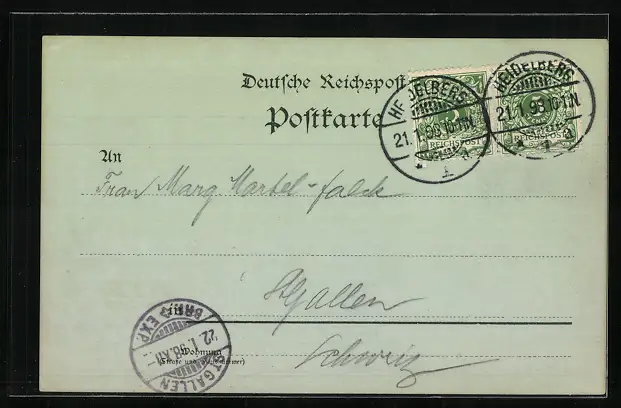 Deutsche Reichspost
Postkarte
HEIDELBERG
21.1.98.10-11N.
* 1 a
REICHSPOST
HEIDELBERG
21.1.98.10-11N.
* 1 a
REICHSPOST
An
Frau Marg Martel-falck
St Gallen
in
Schweiz
Wohnung
(Straße und Hausnummer)
ST. GALLEN
22.I.98.XII
BRF. EXP.